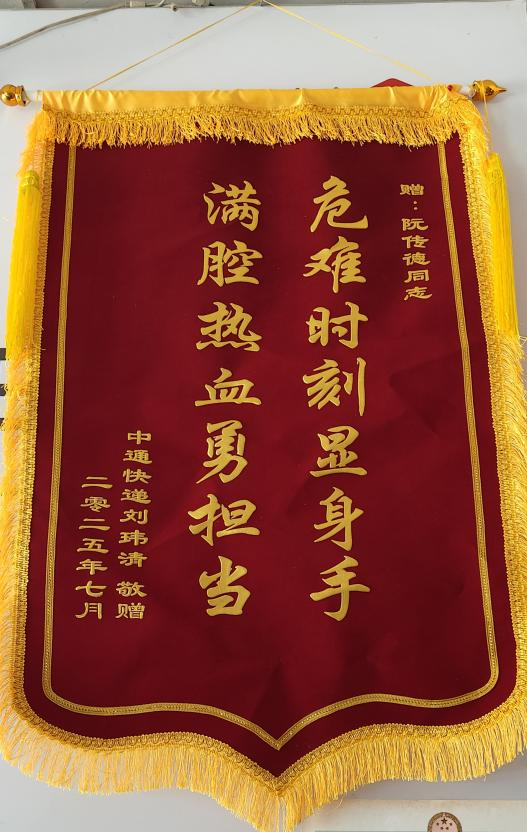 赠：阮传德同志
危难时刻显身手
满腔热血勇担当
中通快递刘玮清 敬赠
二零二五年七月